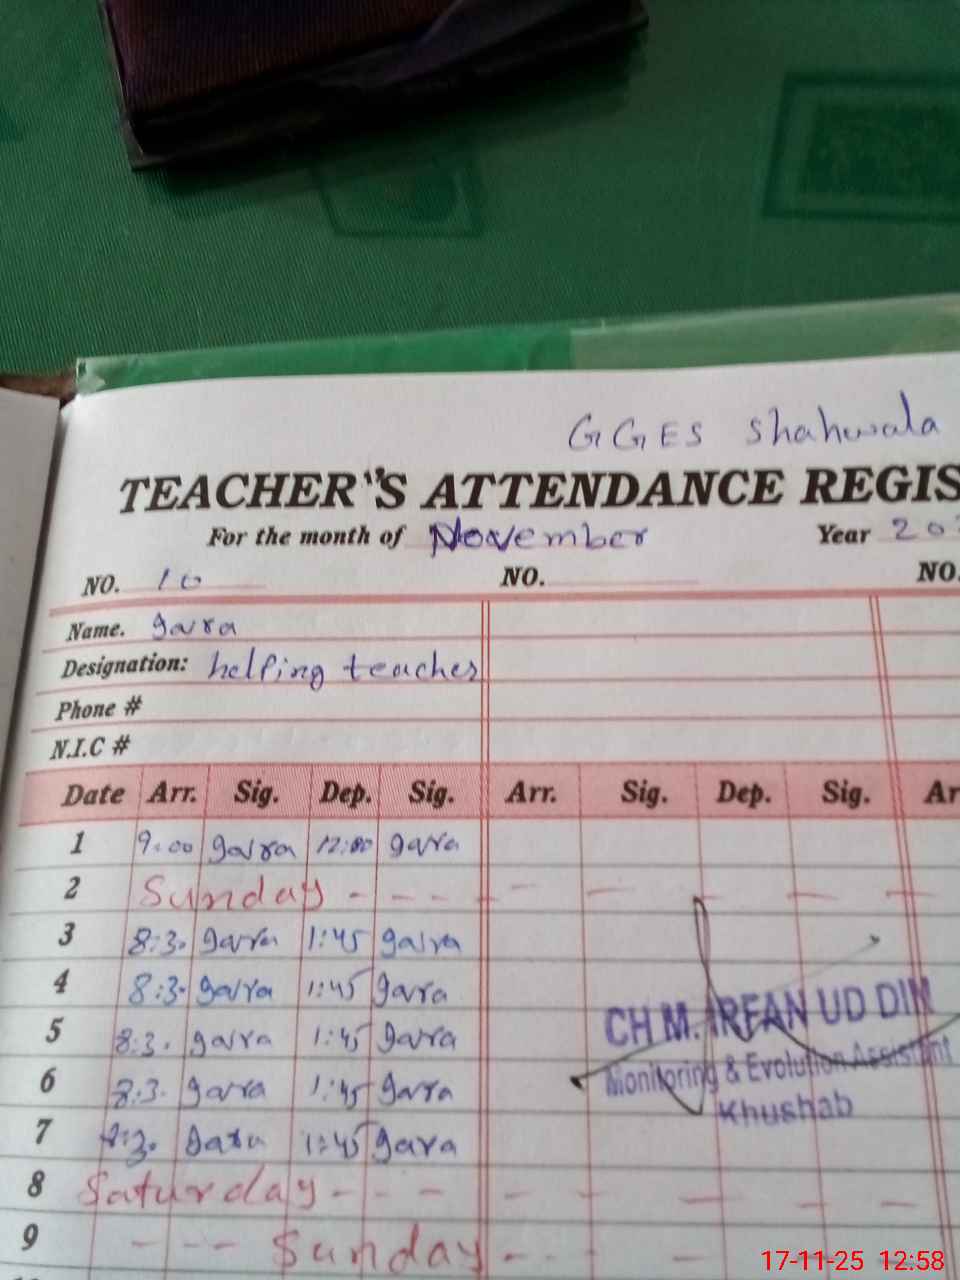 GGES Shahwala
TEACHER'S ATTENDANCE REGIS
For the month of November Year 202
NO. 10 NO. NO.
Name. gavra
Designation: helping teacher
Phone #
N.I.C #
Date Arr. Sig. Dep. Sig. Arr. Sig. Dep. Sig. Ar
1 9:00 gavra 12:00 gavra
2 Sunday - - - - - - - -
3 8:30 gavra 1:45 gavra
4 8:30 gavra 1:45 gavra
5 8:30 gavra 1:45 gavra
6 8:30 gavra 1:45 gavra
7 8:30 gavra 1:45 gavra
CH M. IRFAN UD DIN
Monitoring & Evolution Assistant
Khushab
8 Saturday - - - - - - - -
9 - - - Sunday - - - -
17-11-25 12:58